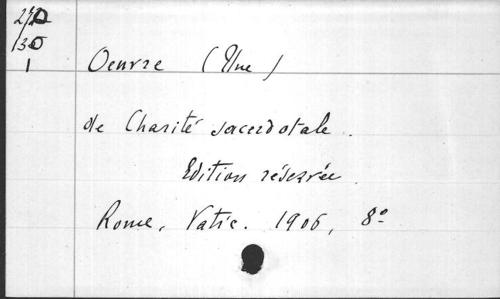 130
1
Oeuvre (Une)
de Charité sacerdotale.
Edition réservée.
Rome, Vatic. 1906, 8º